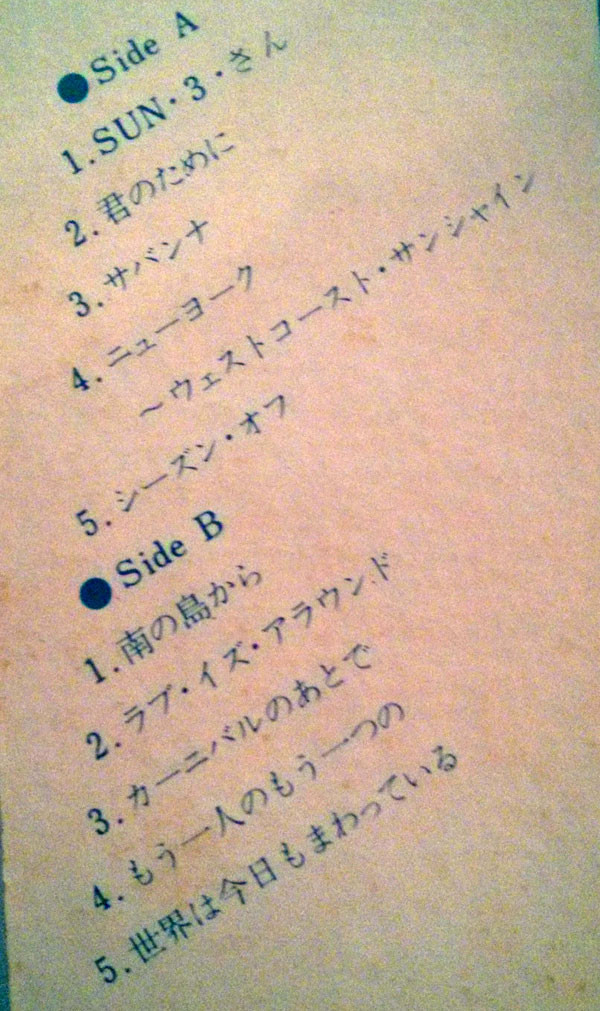 ●Side A
1.SUN・3・さん
2.君のために
3.サバンナ
4.ニューヨーク
～ウェストコースト・サンシャイン
5.シーズン・オフ
●Side B
1.南の島から
2.ラブ・イズ・アラウンド
3.カーニバルのあとで
4.もう一人のもう一つの
5.世界は今日もまわっている